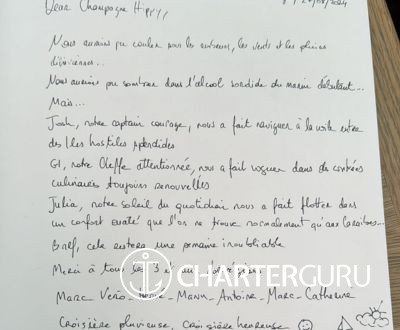 Dear Champagne Hippy,
24/08/2024
Nous aurions pu couler sous les, les vents et les pluies
diluviennes...
Nous aurions pu sombrer dans l'alcool sordide du marin débutant...
Mais...
Josh, notre captain courage, nous a fait naviguer à la voile entre
des îles hostiles splendides
GI, notre Cheffe attentionnée, nous a fait voguer dans des contrées
culinaires toujours renouvelées
Julia, notre soleil du quotidien nous a fait flotter dans
un confort ouaté que l'on ne trouve normalement qu'aux Caraïbes...
Bref, cela restera une semaine inoubliable
Merci à tous
CHARTERGURU
Marc - Véro - - Manu - Antoine - Marc - Catherine
Croisière pluvieuse, Croisière heureuse